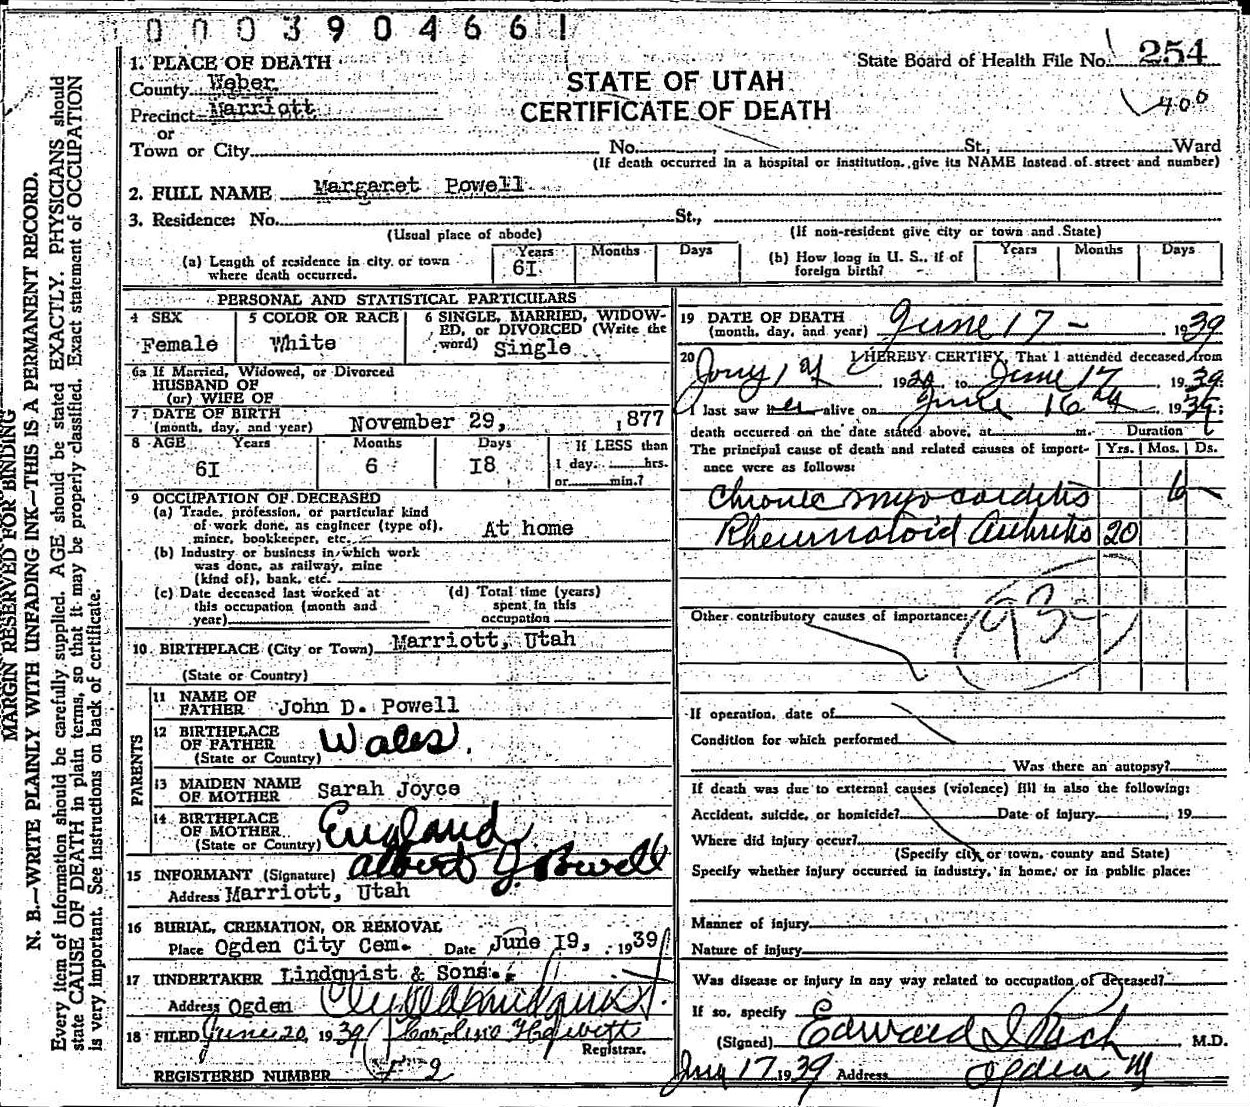 0003904661
MARGIN RESERVED FOR BINDING
N. B.—WRITE PLAINLY WITH UNFADING INK—THIS IS A PERMANENT RECORD.
Every item of information should be carefully supplied. AGE should be stated EXACTLY. PHYSICIANS should
state CAUSE OF DEATH in plain terms, so that it may be properly classified. Exact statement of OCCUPATION
is very important. See instructions on back of certificate.
1. PLACE OF DEATH
County Weber
Precinct Marriott
or
Town or City
STATE OF UTAH
CERTIFICATE OF DEATH
State Board of Health File No. 254
400
No. St., Ward
(If death occurred in a hospital or institution, give its NAME instead of street and number)
2. FULL NAME Margaret Powell
3. Residence: No. St.,
(Usual place of abode) (If non-resident give city or town and State)
(a) Length of residence in city or town where death occurred. Years 61 Months Days
(b) How long in U. S., if of foreign birth? Years Months Days
PERSONAL AND STATISTICAL PARTICULARS
4 SEX Female
5 COLOR OR RACE White
6 SINGLE, MARRIED, WIDOWED, or DIVORCED (Write the word) Single
6a If Married, Widowed, or Divorced
HUSBAND OF
(or) WIFE OF
7 DATE OF BIRTH (month, day, and year) November 29, 1877
8 AGE Years 61 Months 6 Days 18 If LESS than 1 day hrs. or min.?
9 OCCUPATION OF DECEASED
(a) Trade, profession, or particular kind of work done, as engineer (type of), miner, bookkeeper, etc. At home
(b) Industry or business in which work was done, as railway, mine (kind of), bank, etc.
(c) Date deceased last worked at this occupation (month and year)
(d) Total time (years) spent in this occupation
10 BIRTHPLACE (City or Town) Marriott, Utah
(State or Country)
PARENTS
11 NAME OF FATHER John D. Powell
12 BIRTHPLACE OF FATHER (State or Country) Wales.
13 MAIDEN NAME OF MOTHER Sarah Joyce
14 BIRTHPLACE OF MOTHER (State or Country) England
15 INFORMANT (Signature) Albert J. Powell
Address Marriott, Utah
16 BURIAL, CREMATION, OR REMOVAL
Place Ogden City Cem. Date June 19, 1939
17 UNDERTAKER Lindquist & Sons.
Address Ogden
18 FILED June 20, 1939 Caroline Hewitt
Registrar.
REGISTERED NUMBER
19 DATE OF DEATH (month, day, and year) June 17 - 1939
20 I HEREBY CERTIFY, That I attended deceased from
to June 17, 1939;
I last saw her alive on June 16th, 1939;
death occurred on the date stated above, at m. Duration
The principal cause of death and related causes of importance were as follows: Yrs. Mos. Ds.
Chronic myocarditis 6
Rheumatoid Arthritis 20
Other contributory causes of importance:
If operation, date of
Condition for which performed
Was there an autopsy?
If death was due to external causes (violence) fill in also the following:
Accident, suicide, or homicide? Date of injury, 19
Where did injury occur?
(Specify city or town, county and State)
Specify whether injury occurred in industry, in home, or in public place:
Manner of injury
Nature of injury
Was disease or injury in any way related to occupation of deceased?
If so, specify
(Signed) Edward I Rich, M.D.
17 1939 Address Ogden